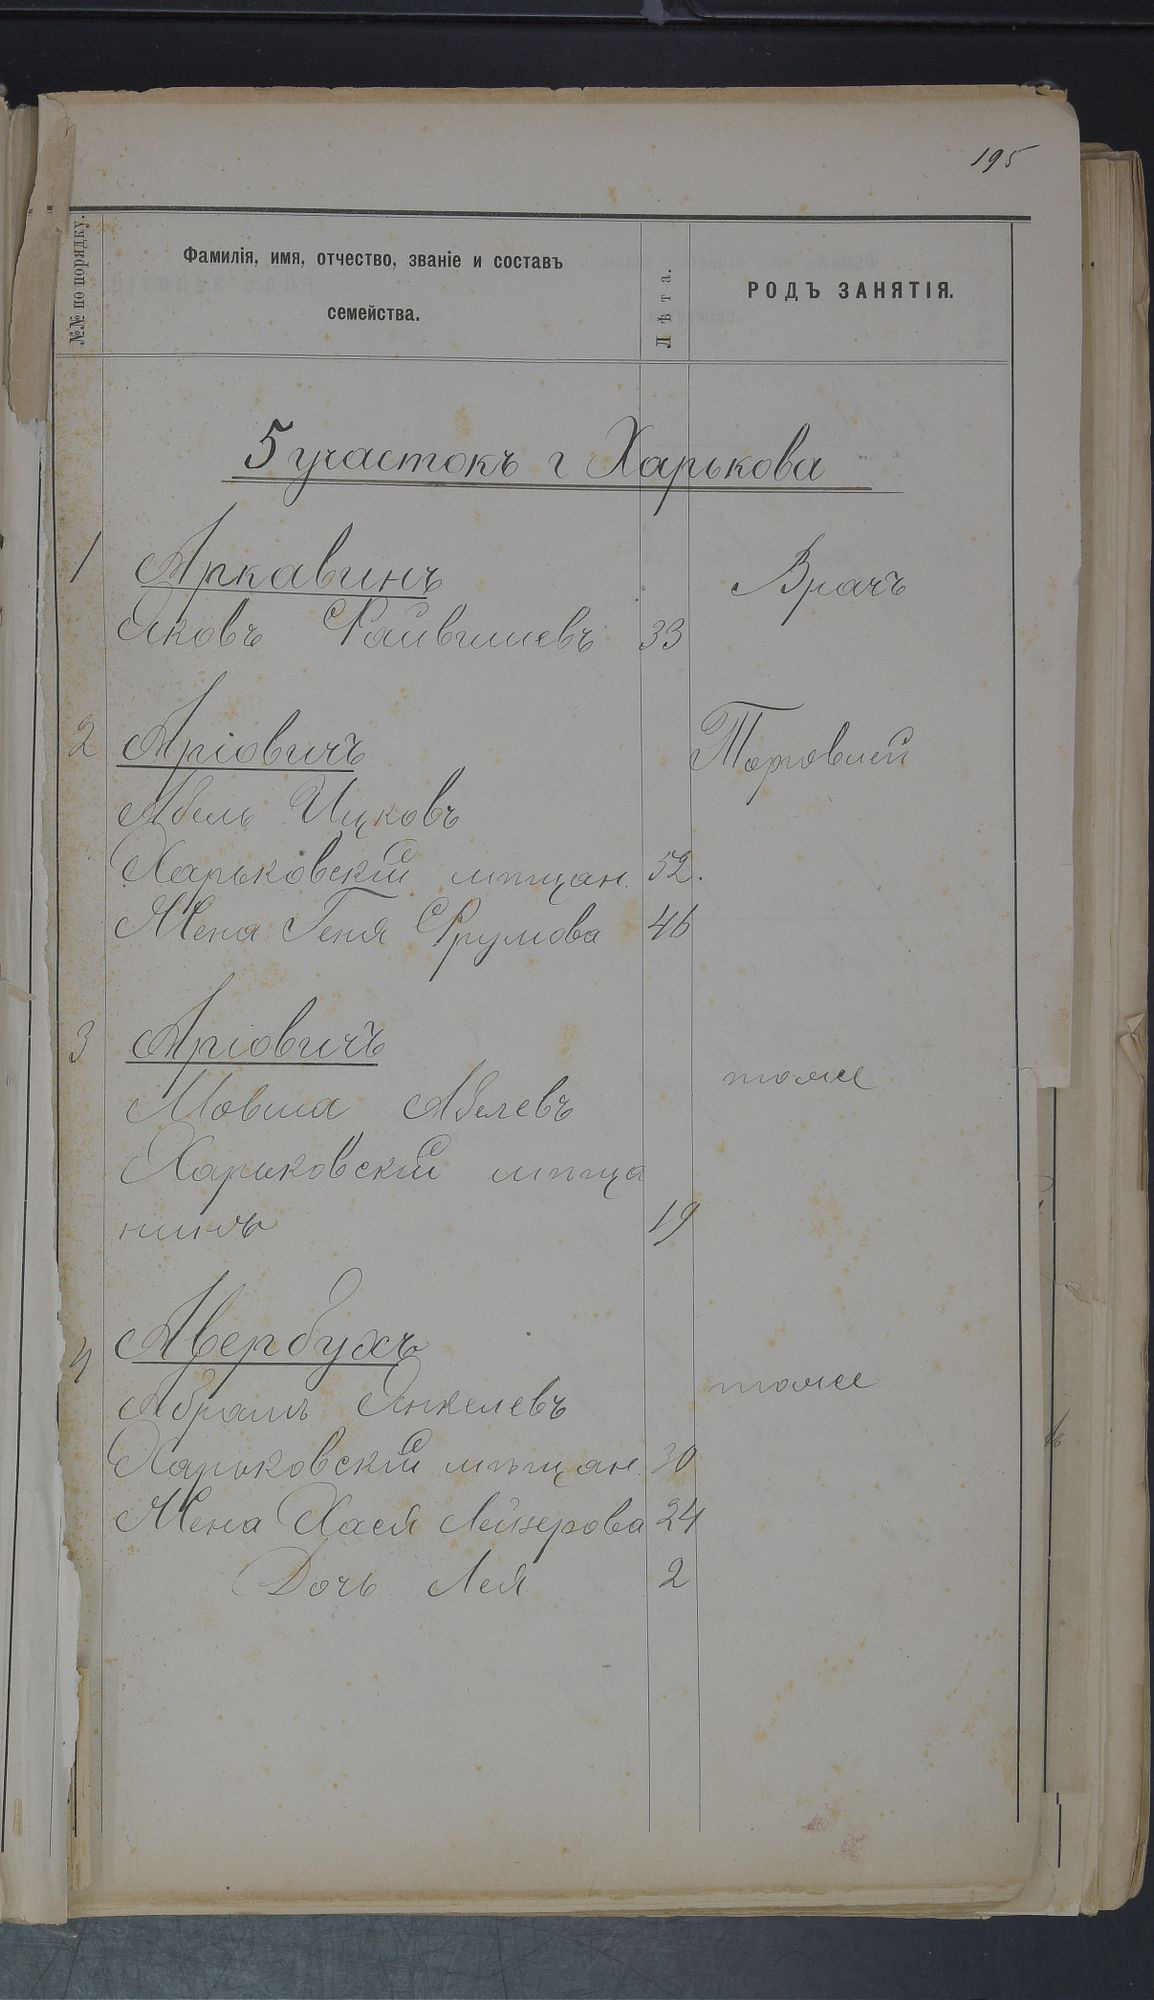 195
№№ по порядку.
Фамилія, имя, отчество, званіе и составъ
семейства.
Лѣта.
РОДЪ ЗАНЯТІЯ.
5 участокъ г Харькова
1 Аркавинъ Врачъ
Яковъ Файвишевъ 33
2 Аріовичъ Торговлей
Абель Ицковъ
Харьковскій мѣщан. 52.
Жена Геня Фрумова 46
3 Аріовичъ
тоже
Мовша Абелевъ
Харьковскій мѣща
нинъ 19
4 Авербухъ
Абрамъ Янкелевъ тоже
Харьковскій мѣщан. 30
Жена Хася Лейзерова 24
Дочь Лея 2